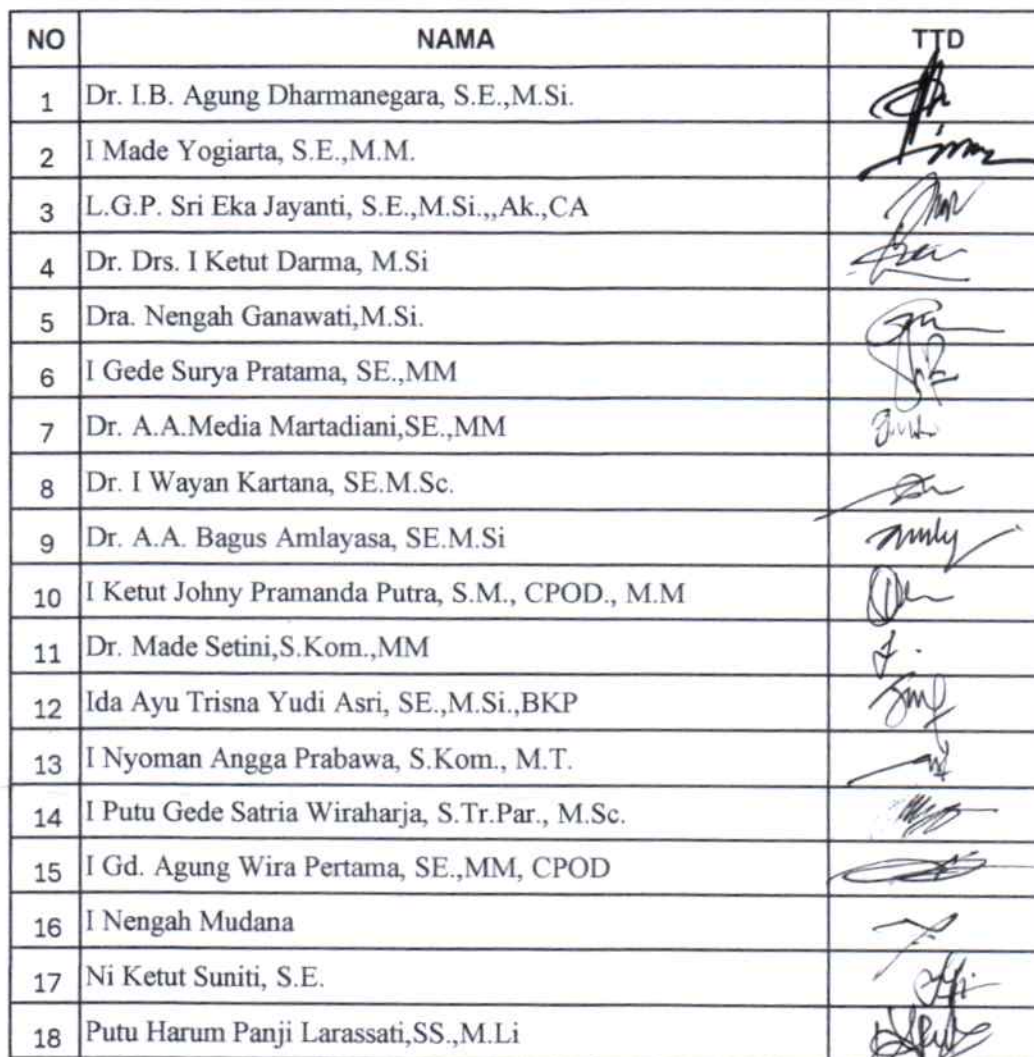 NO NAMA TTD
1 Dr. I.B. Agung Dharmanegara, S.E.,M.Si.
2 I Made Yogiarta, S.E.,M.M.
3 L.G.P. Sri Eka Jayanti, S.E.,M.Si.,,Ak.,CA
4 Dr. Drs. I Ketut Darma, M.Si
5 Dra. Nengah Ganawati,M.Si.
6 I Gede Surya Pratama, SE.,MM
7 Dr. A.A.Media Martadiani,SE.,MM
8 Dr. I Wayan Kartana, SE.M.Sc.
9 Dr. A.A. Bagus Amlayasa, SE.M.Si
10 I Ketut Johny Pramanda Putra, S.M., CPOD., M.M
11 Dr. Made Setini,S.Kom.,MM
12 Ida Ayu Trisna Yudi Asri, SE.,M.Si.,BKP
13 I Nyoman Angga Prabawa, S.Kom., M.T.
14 I Putu Gede Satria Wiraharja, S.Tr.Par., M.Sc.
15 I Gd. Agung Wira Pertama, SE.,MM, CPOD
16 I Nengah Mudana
17 Ni Ketut Suniti, S.E.
18 Putu Harum Panji Larassati,SS.,M.Li